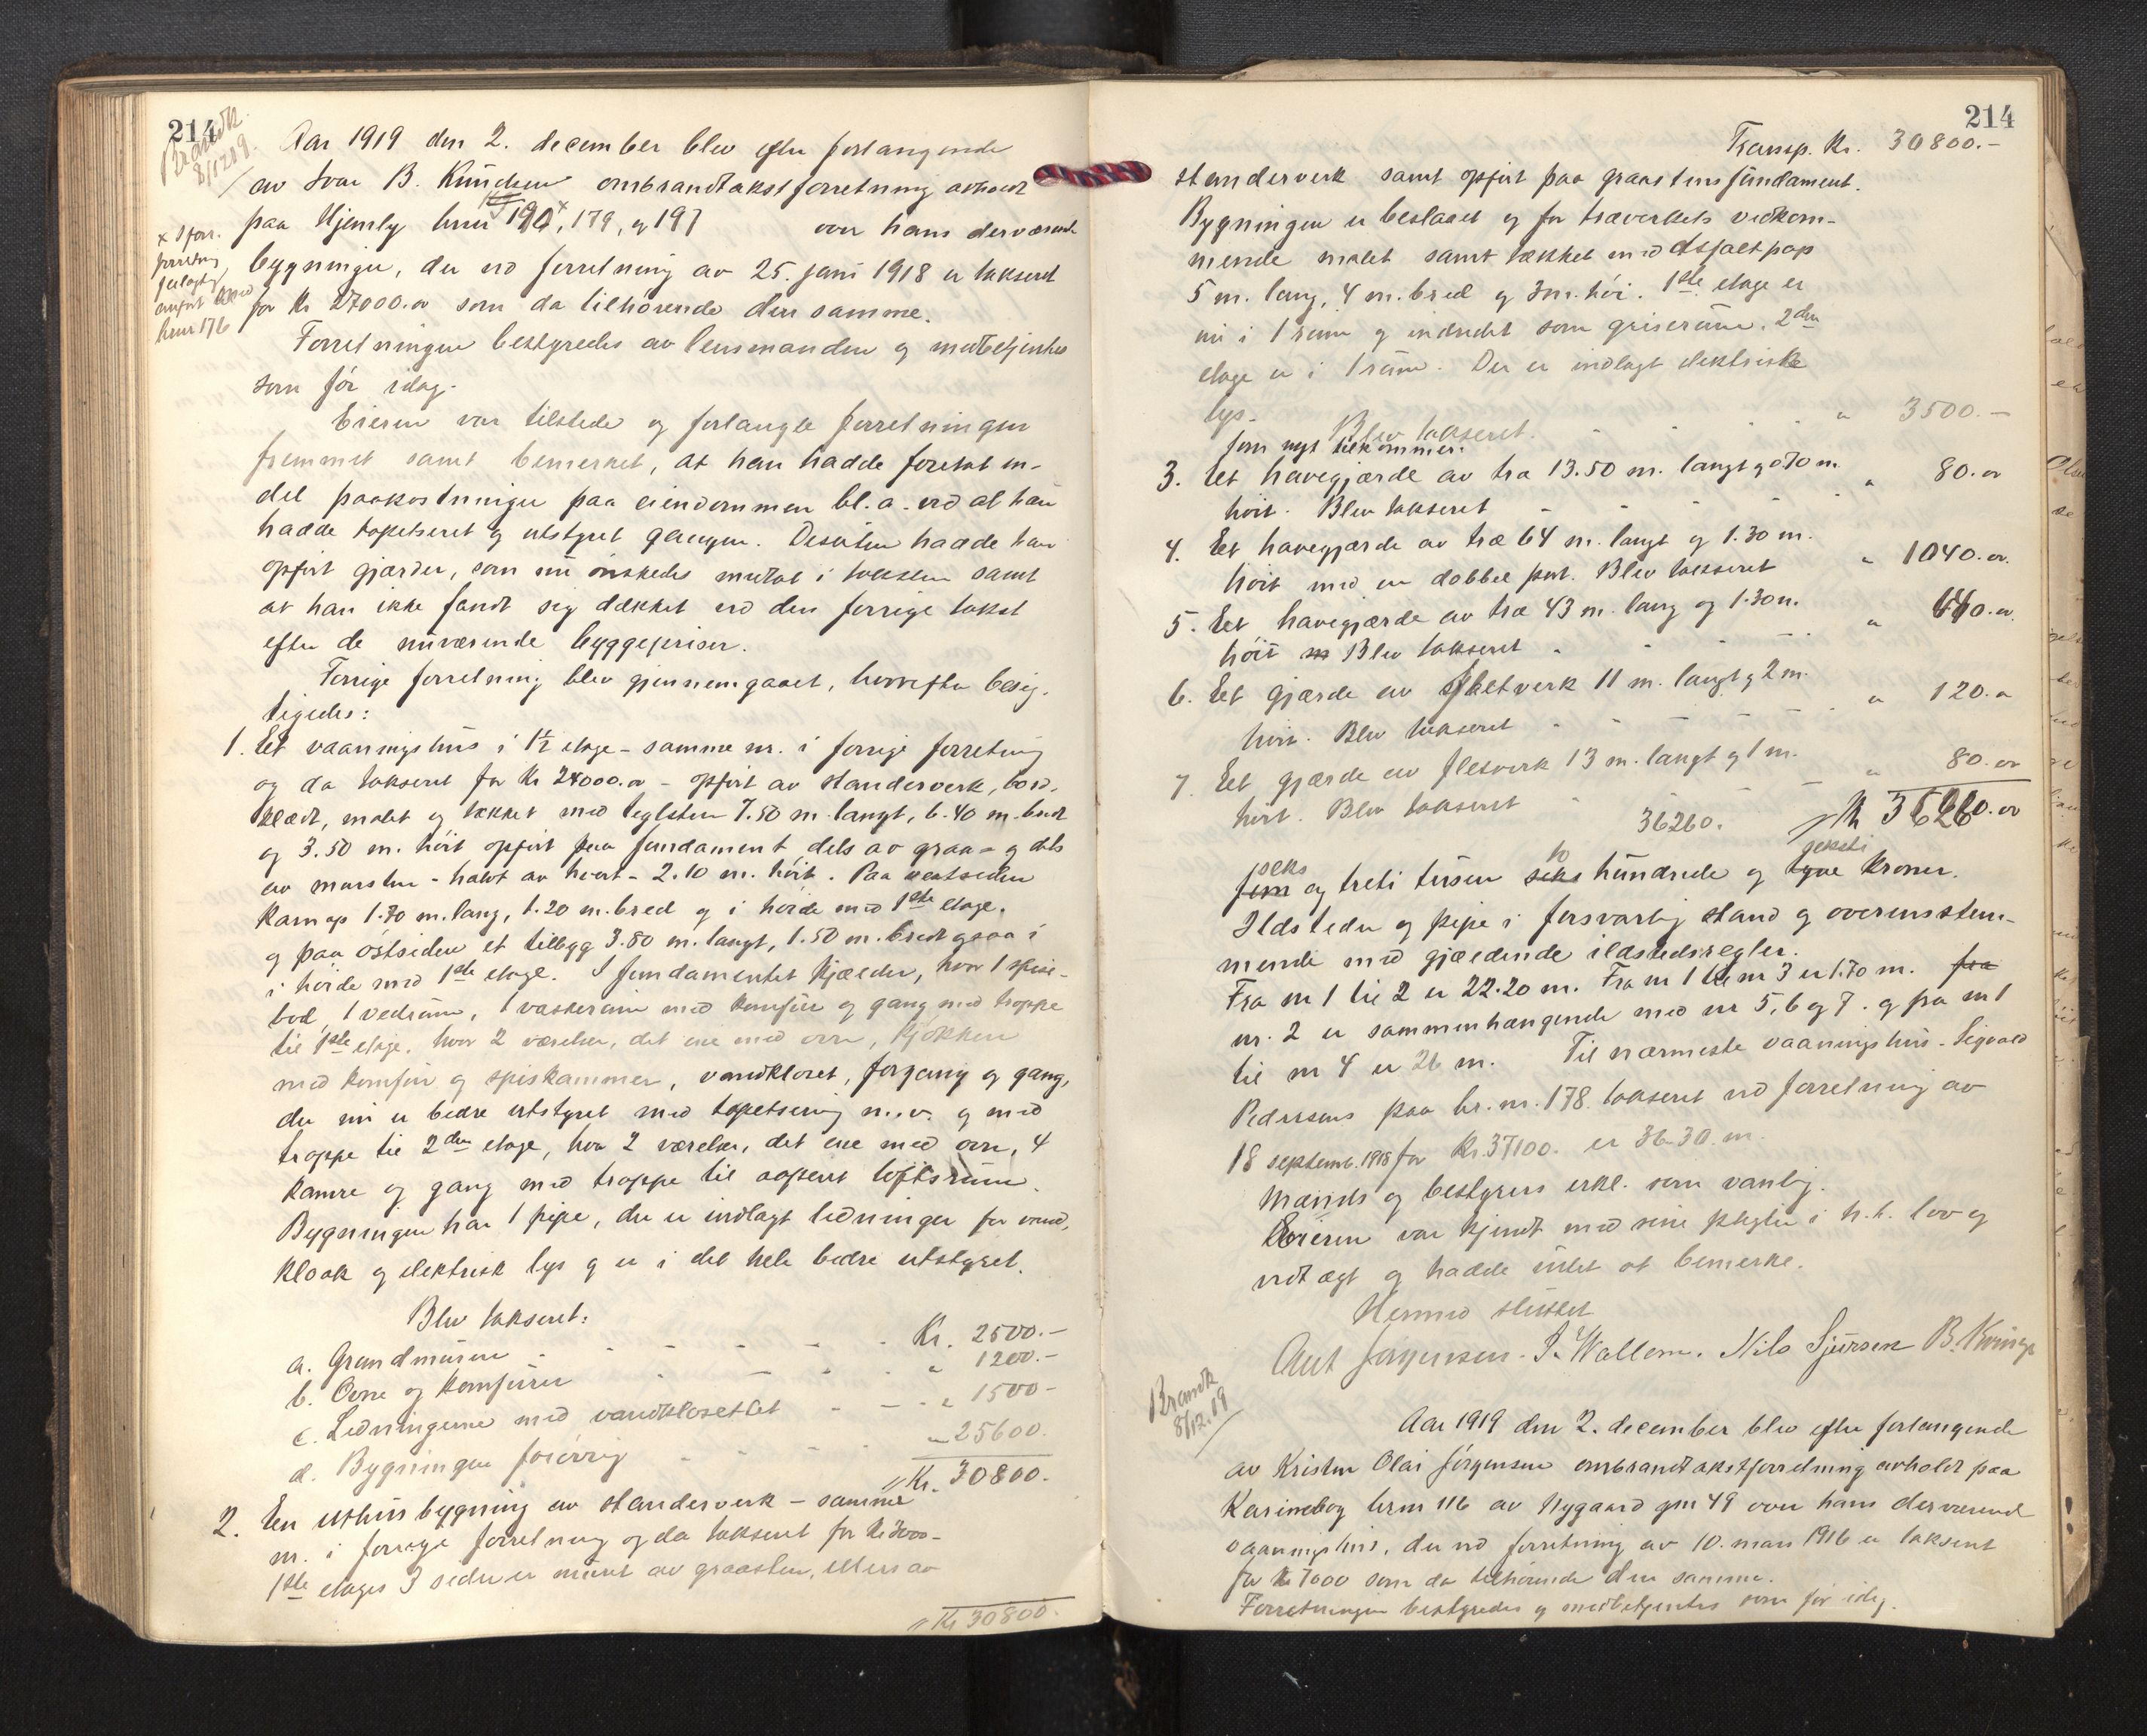 214
Brandk.
8/12 19.
Aar 1919 den 2. december blev efter forlangende
av Ivar B. Knudsen ombrandtakstforretning avholdt
paa Hjemly brnr 190×, 179, og 197 over hans derværende
× I forr.
forretning
feilagtig
anført med
brnr 176
bygninger, der ved forretning av 25. juni 1918 er taksert
for kr 27000.00 som da tilhørende den samme.
Forretningen bestyredes av lensmanden og medbetjentes
som før idag.
Eieren var tilstede og forlangte forretningen
fremmet samt bemerket, at han hadde foretat en-
del paakostninger paa eiendommen bl.a. ved at han
hadde tapetseret og utstyret gangen. Desuten hadde han
opført gjærder, som nu ønskedes medtat i taksten samt
at han ikke fandt sig dækket ved den forrige takst
efter de nuværende byggepriser.
Forrige forretning blev gjennemgaaet, hvorefter besig-
tigedes:
1. Et vaaningshus i 1½ etage - samme nr. i forrige forretning
og da takseret for Kr 24000.00 - opført av standerverk, bord-
klædt, malet og tækket med teglsten 7.50 m. langt, 6.40 m. bredt
og 3.50 m. høit opført paa fundament dels av graa- og dels
av mursten - halvt av hvert - 2.10 m. høit. Paa vestsiden
karnap 1.70 m. lang, 1.20 m. bred og i høide med 1ste etage.
og paa østsiden et tilbygg 3.80 m. langt, 1.50 m. bredt ogsaa i
i høide med 1ste etage. I fundamentet kjælder, hvor 1 spise-
bod, 1 vedrum, 1 vaskerum med komfur og gang med trappe
til 1ste etage, hvor 2 værelser, det ene med ovn, kjøkken
med komfur og spiskammer, vandkloset, forgang og gang,
der nu er bedre utstyret med tapetsering m.v. og med
trappe til 2den etage, hvor 2 værelser, det ene med ovn, 4
kamre og gang med trappe til aapent loftsrum.
Bygningen har 1 pipe, der er indlagt ledninger for vand,
kloak og elektrisk lys og er i det hele bedre utstyret.
Blev takseret:
a. Grundmuren - - - - - Kr. 2500.-
b. Ovne og komfurer - - - - " 1200.-
c. Ledningerne med vandklosettet - - - " 1500-
d. Bygningen forøvrig - - - - " 25600.
" Kr. 30800.
2. En uthusbygning av standerverk - samme
nr. i forrige forretning og da takseret for kr 3000-
1ste etages 3 sider er muret av graasten, ellers av
" Kr 30800.
214
Transp. Kr. 30800.-
standerverk samt opført paa graastensfundament.
Bygningen er beslaaet og for træverkets vedkom-
mende malet samt tækket med asfaltpap
5 m. lang, 4 m. bred og 3 m. høi. 1ste etage er
nu i 1 rum og indredet som griserum. 2den
etage er i 1 rum. Der er indlagt elektriske
lys. Blev takseret. - - - " 3500.-
som nyt tilkommer:
3. Et havegjærde av træ 13.50 m. langt og 0.70 m.
høit. Blev takseret - - - - " 80.00
4. Et havegjærde av træ 64 m. langt og 1.30 m.
høit med en dobbel port. Blev takseret " 1040.00.
5. Et havegjærde av træ 43 m. lang og 1.30 m.
høit Blev takseret - - - - " 640.00.
6. Et gjærde av fletverk 11 m. langt og 2 m.
høit. Blev takseret - - - - " 120.00
7. Et gjærde av fletverk 13 m. langt og 1 m.
høit. Blev takseret - - " 80.00
36260. " Kr 36260.00
seks to seksti
fem og treti tusen seks hundrede og tyve kroner.
Ildsteder og pipe i forsvarlig stand og overensstem-
mende med gjældende ildstedsregler.
Fra nr 1 til 2 er 22.20 m. Fra nr 1 til nr 3 er 1.70 m. fra
nr. 2 er sammenhængende med nr 5, 6 og 7. og fra nr 1
til nr 4 er 26 m. Til nærmeste vaaningshus - Sigvald
Pedersens paa br. nr. 178 takseret ved forretning av
18 septemb. 1918 for Kr. 37100. er 36.30. m.
Mænds og bestyrers erkl. som vanlig.
Eieren var kjendt med sine pligter i h.t. lov og
vedtægt og hadde intet at bemerke.
Hermed sluttet
Ant Jørgensen. I. Wallem. Nils Sjursen B. Knudsen
Brandk
8/12.19
Aar 1919 den 2. december blev efter forlangende
av Kristen Olai Jørgensen ombrandtakstforretning avholdt paa
Karinebog brnr 116 av Nygaard gnr 49 over hans derværende
vaaningshus, der ved forretning av 10. mars 1916 er taksert
for kr 7000 som da tilhørende den samme.
Forretningen bestyredes og medbetjentes som før idag.